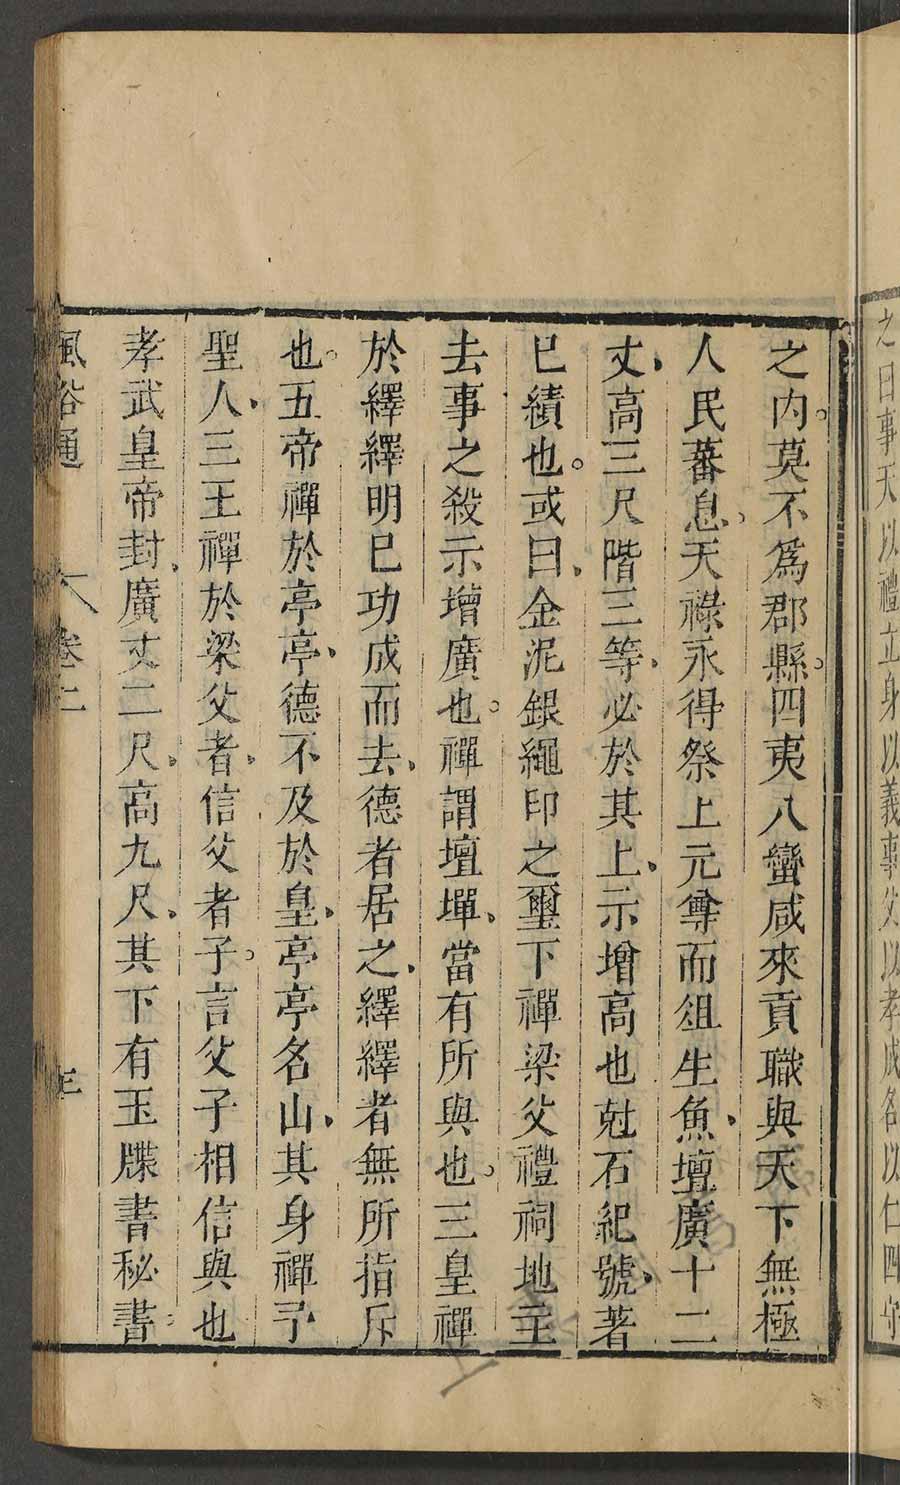 之日事天以禮立身以義事父以孝成名以仁四守
之内莫不爲郡縣四夷八蠻咸來貢職與天下無極
人民蕃息天祿永得祭上元尊而俎生魚壇廣十二
丈高三尺階三等必於其上示增高也尅石紀號著
已績也或曰金泥銀繩印之璽下禪梁父禮祠地主
去事之殺示增廣也禪謂壇墠當有所與也三皇禪
於繹繹明已功成而去德者居之繹繹者無所指斥
也五帝禪於亭亭德不及於皇亭亭名山其身禪予
聖人三王禪於梁父者信父者子言父子相信與也
孝武皇帝封廣丈二尺高九尺其下有玉牒書秘書
風俗通 卷二 三